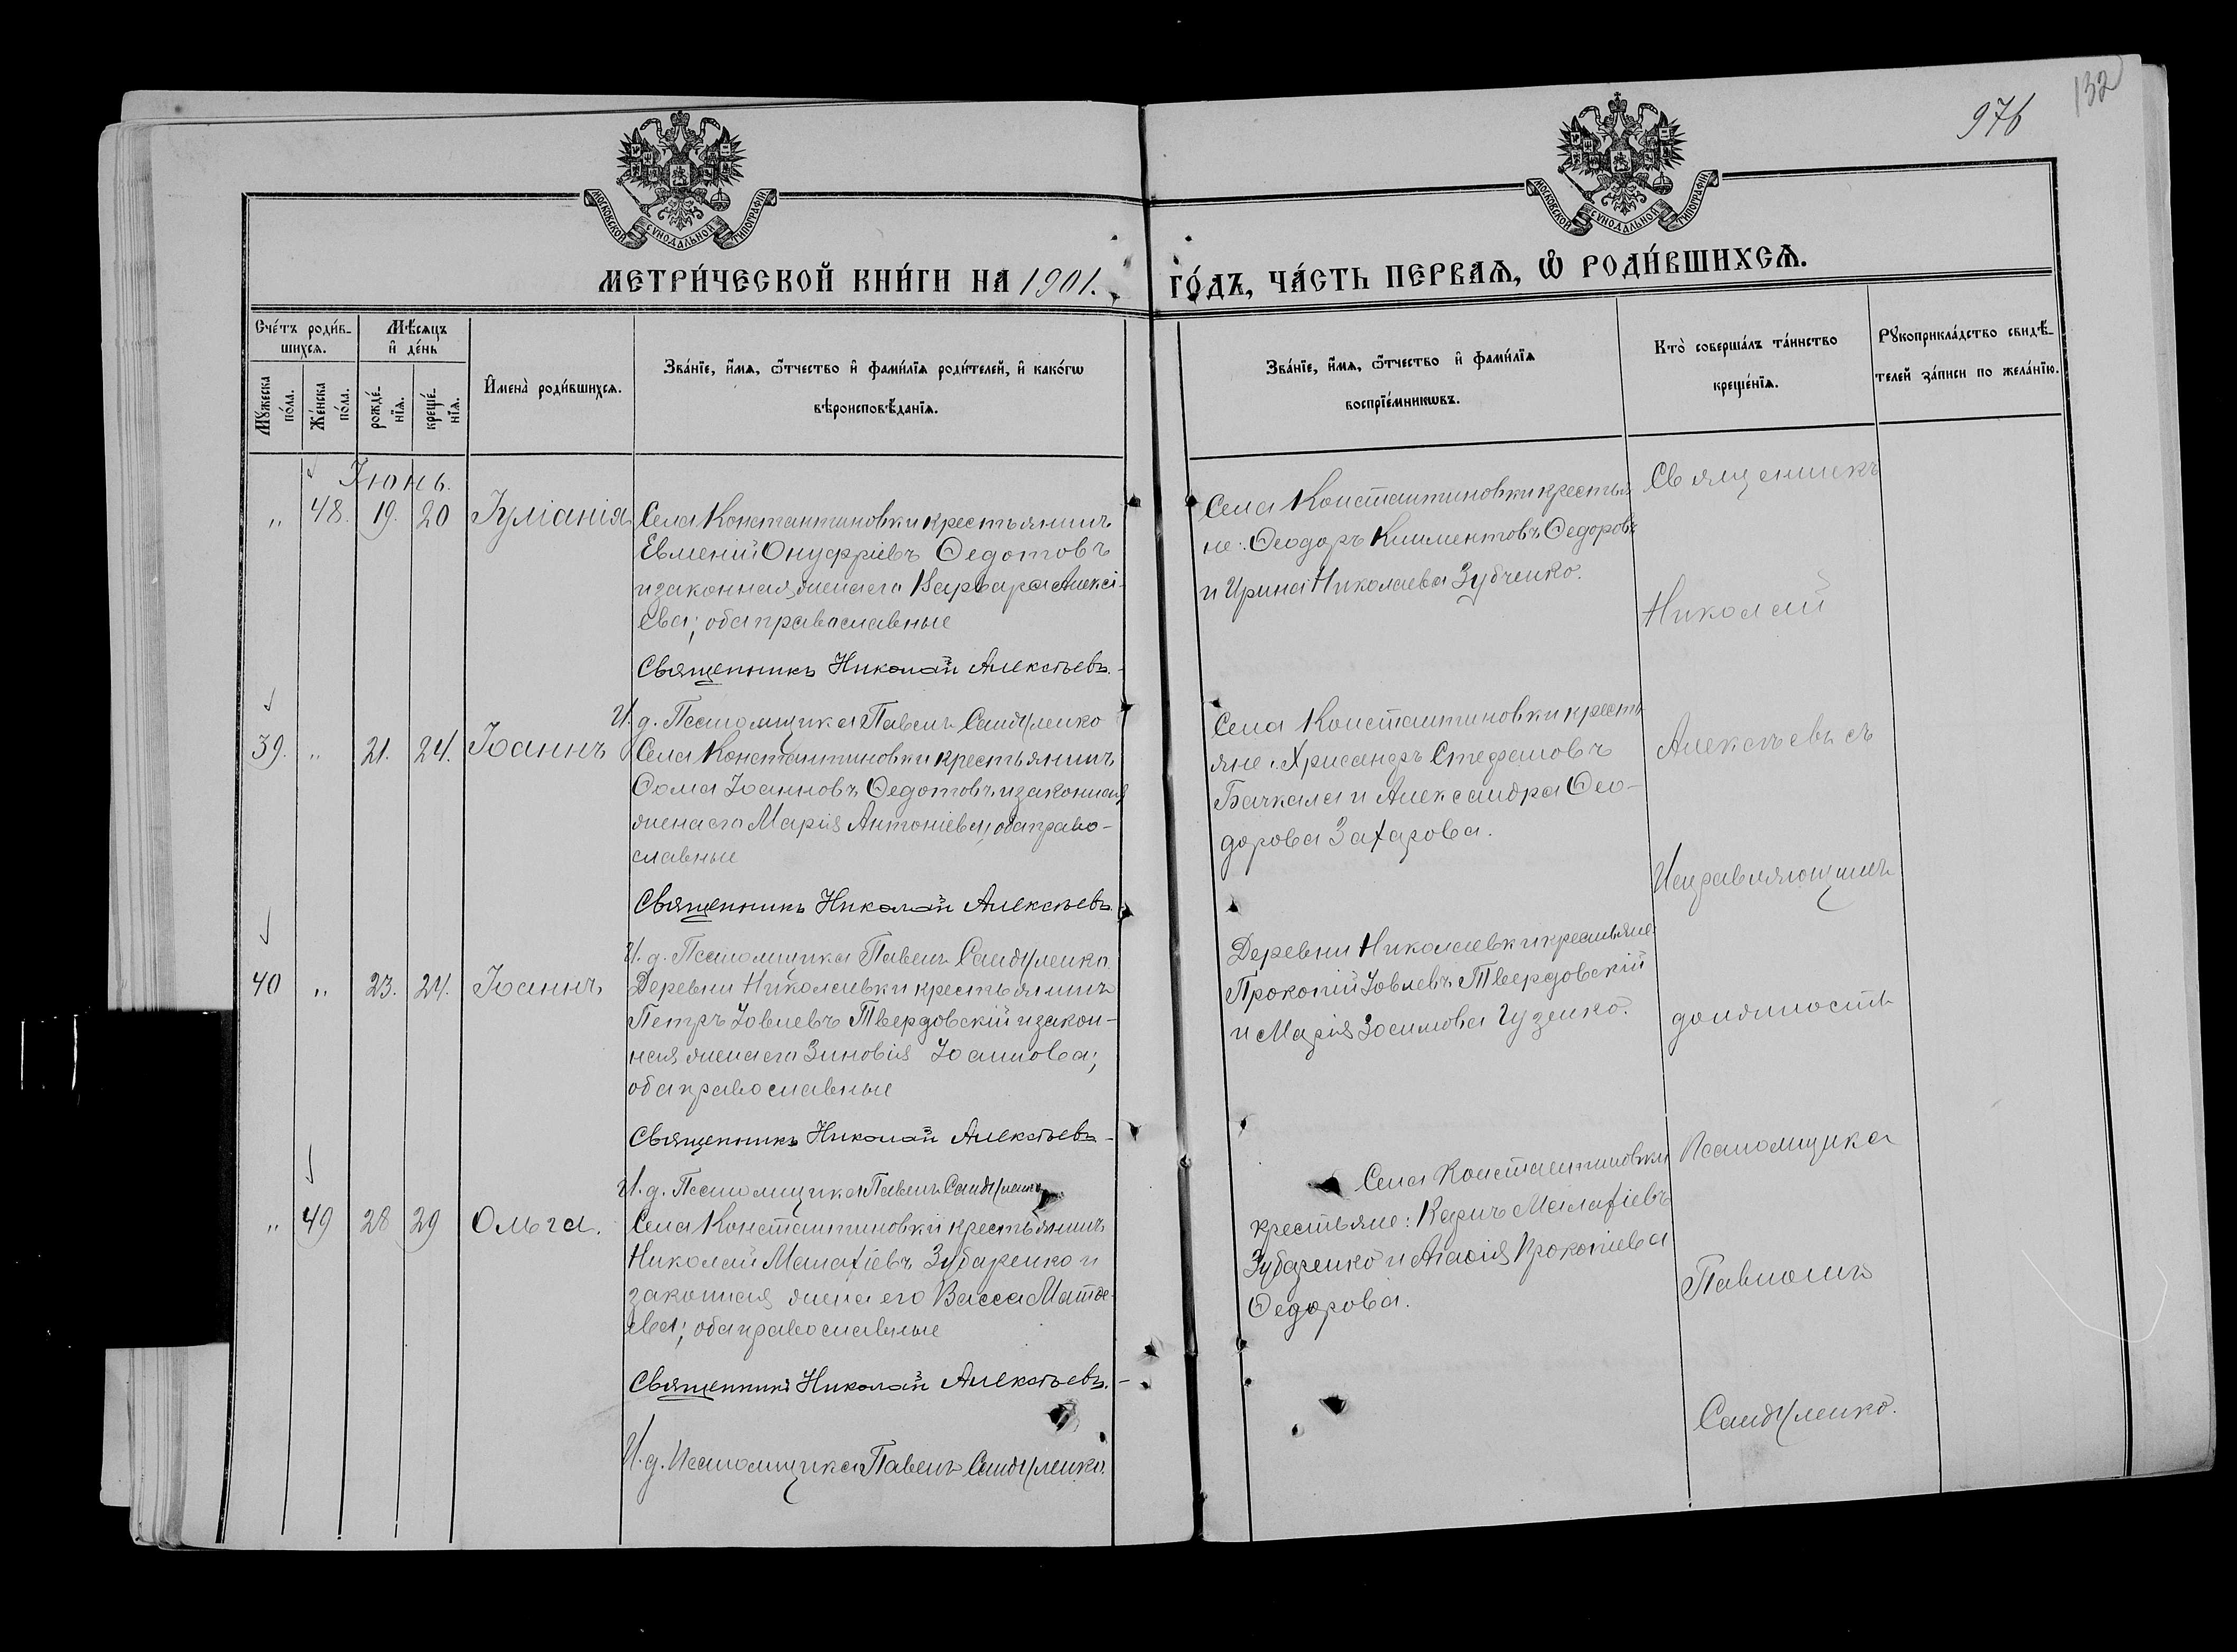 132
976
МОСКОВСКОЙ СѴНОДАЛЬНОЙ ТИПОГРАФІИ
МОСКОВСКОЙ СѴНОДАЛЬНОЙ ТИПОГРАФІИ
МЕТРИ́ЧЕСКОЙ КНИ́ГИ НА 1901.
ГО́ДЪ, ЧА́СТЬ ПЕРВАѦ, Ѽ РОДИ́ВШИХСѦ.
Сче́тъ роди́в-
шихсѧ.
Мѣ́сѧцъ
и҆ де́нь
Мꙋ́жеска
по́ла.
Же́нска
по́ла.
рожде́-
нїѧ.
креще́-
нїѧ.
И҆мена̀ роди́вшихсѧ.
Зва́нїе, и҆́мѧ, ѻ҆́тчество и҆ фами́лїѧ роди́телей, и҆ како́гѡ
вѣроисповѣ́данїѧ.
Зва́нїе, и҆́мѧ, ѻ҆́тчество и҆ фами́лїѧ
воспрїе́мникѡвъ.
Кто̀ соверша́лъ та́инство
креще́нїѧ.
Рꙋкоприкла́дство свидѣ́-
телей за́писи по жела́нїю.
Іюнь.
„ 48. 19. 20 Іуліанія
Села Константиновки крестьянинъ
Евменій Онуфріевъ Ѳедотовъ
и законная жена его Варвара Алексі-
ева; оба православные
Священникъ Николай Алексѣевъ.
И. д. Псаломщика Павелъ Сандуленко
Села Константиновки крестья
не: Ѳеодоръ Климентовъ Ѳедоровъ
и Ирина Николаева Зубченко.
39. „ 21. 24. Іоаннъ
Села Константиновки крестьянинъ
Ѳома Іоанновъ Ѳедотовъ и законная
жена его Марія Антоніева; оба право-
славные
Священникъ Николай Алексѣевъ.
И. д. Псаломщика Павелъ Сандуленко
Села Константиновки кресть
яне: Хрисанфъ Стефановъ
Бачкала и Александра Ѳео-
дорова Захарова.
40 „ 23. 24. Іоаннъ
Деревни Николаевки крестьянинъ
Петръ Іовлевъ Твердовскій и закон-
ная жена его Зиновія Іоаннова;
оба православные
Священникъ Николай Алексѣевъ
И. д. Псаломщика Павелъ Сандуленко
Деревни Николаевки крестьяне:
Прокопій Іовлевъ Твердовскій
и Марія Зосимова Гузенко.
„ 49 28 29 Ольга.
Села Константиновки крестьянинъ
Николай Малахіевъ Зубаренко и
законная жена его Васса Матѳе-
ева; оба православные
Священникъ Николай Алексѣевъ.
И. д. Псаломщика Павелъ Сандуленко.
Села Константиновки
крестьяне: Карпъ Малахіевъ
Зубаренко и Агаѳія Прокопіева
Ѳедорова.
Священникъ
Николай
Алексѣевъ съ
Исправляющимъ
должность
Псаломщика
Павломъ
Сандуленко.